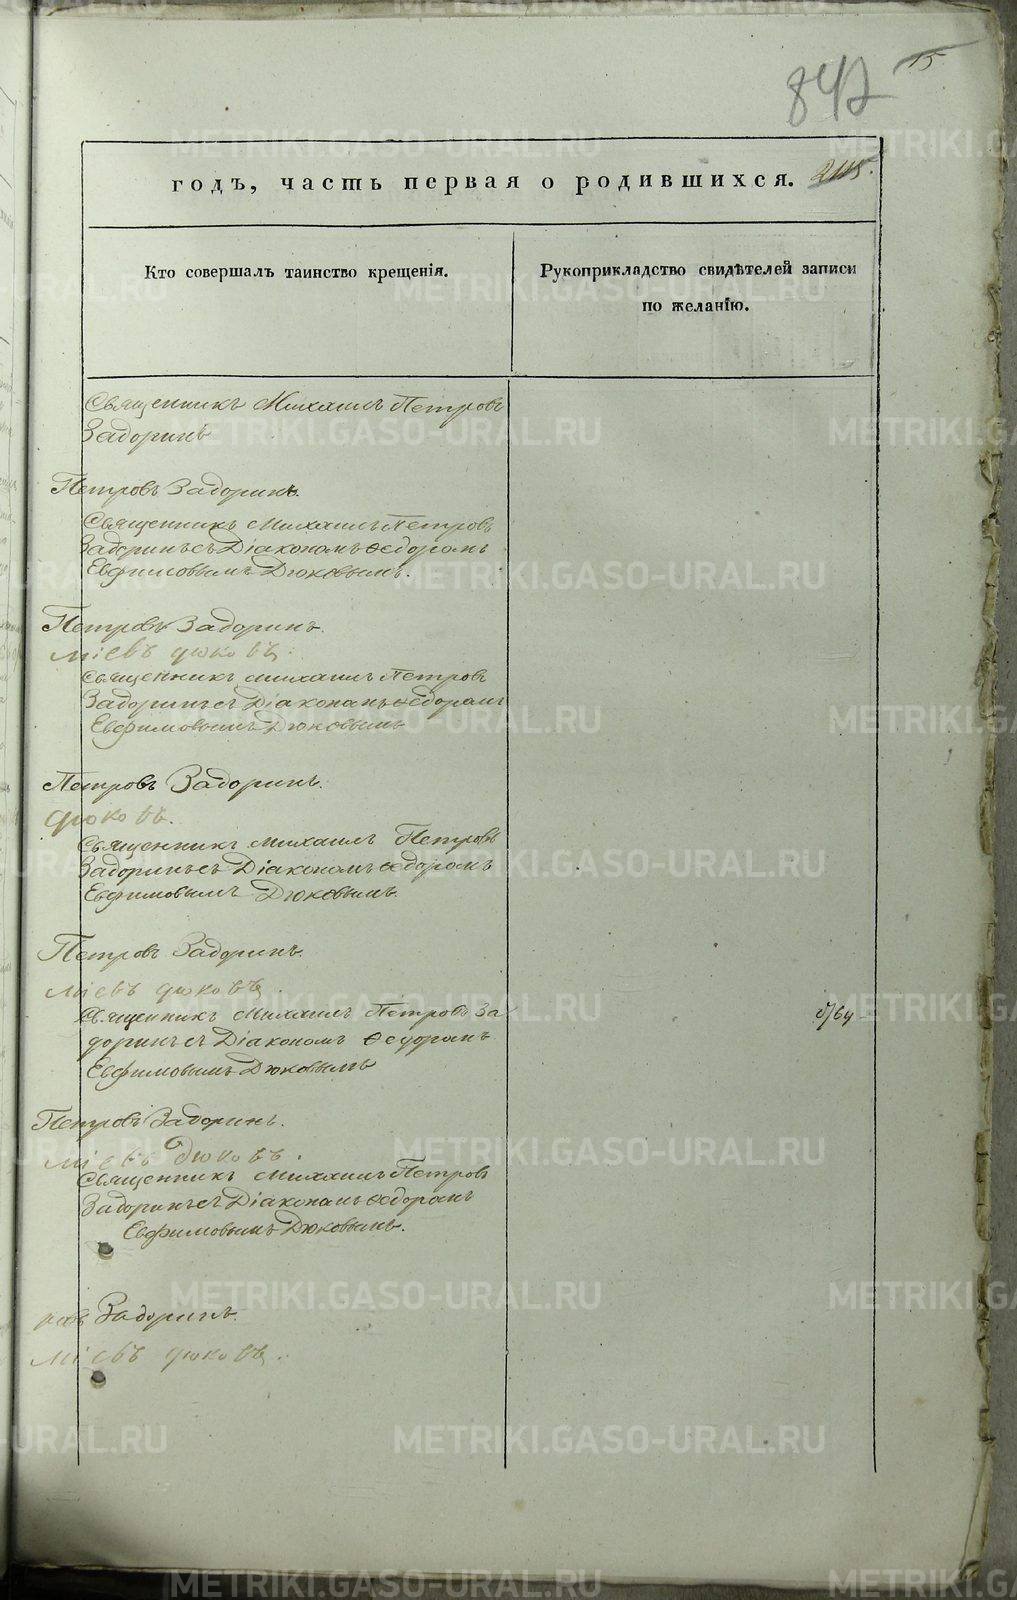 15
847
годъ, часть первая о родившихся.
Кто совершалъ таинство крещенія.
Рукоприкладство свидѣтелей записи
по желанію.
Священникъ Михаилъ Петровъ
Задоринъ
Петровъ Задоринъ.
Священникъ Михаилъ Петровъ
Задоринъ съ Діакономъ Ѳедоромъ
Евфимовымъ Дюковымъ.
Петровъ Задоринъ.
міевъ дюковъ.
Священникъ Михаилъ Петровъ
Задоринъ съ Діакономъ Ѳедоромъ
Евфимовымъ Дюковымъ
Петровъ Задоринъ.
дюковъ.
Священникъ Михаилъ Петровъ
Задоринъ съ Діакономъ Ѳедоромъ
Евфимовымъ Дюковымъ.
Петровъ Задоринъ.
міевъ дюковъ.
Священникъ Михаилъ Петровъ За
доринъ съ Діакономъ Ѳедоромъ
Евфимовымъ Дюковымъ
Петровъ Задоринъ.
міевъ Дюковъ.
Священникъ Михаилъ Петровъ
Задоринъ съ Діакономъ Ѳедоромъ
Евфимовымъ Дюковымъ.
ровъ Задоринъ.
міевъ дюковъ.
METRIKI.GASO-URAL.RU